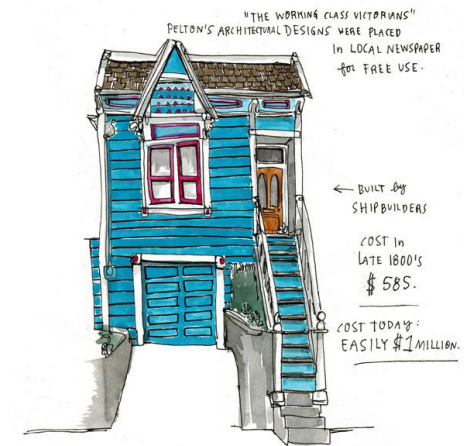 "THE WORKING CLASS VICTORIANS"
PELTON'S ARCHITECTURAL DESIGNS WERE PLACED
IN LOCAL NEWSPAPER
for FREE USE.
← BUILT by
SHIPBUILDERS
COST IN
LATE 1800'S
$ 585.
COST TODAY:
EASILY $1 MILLION.